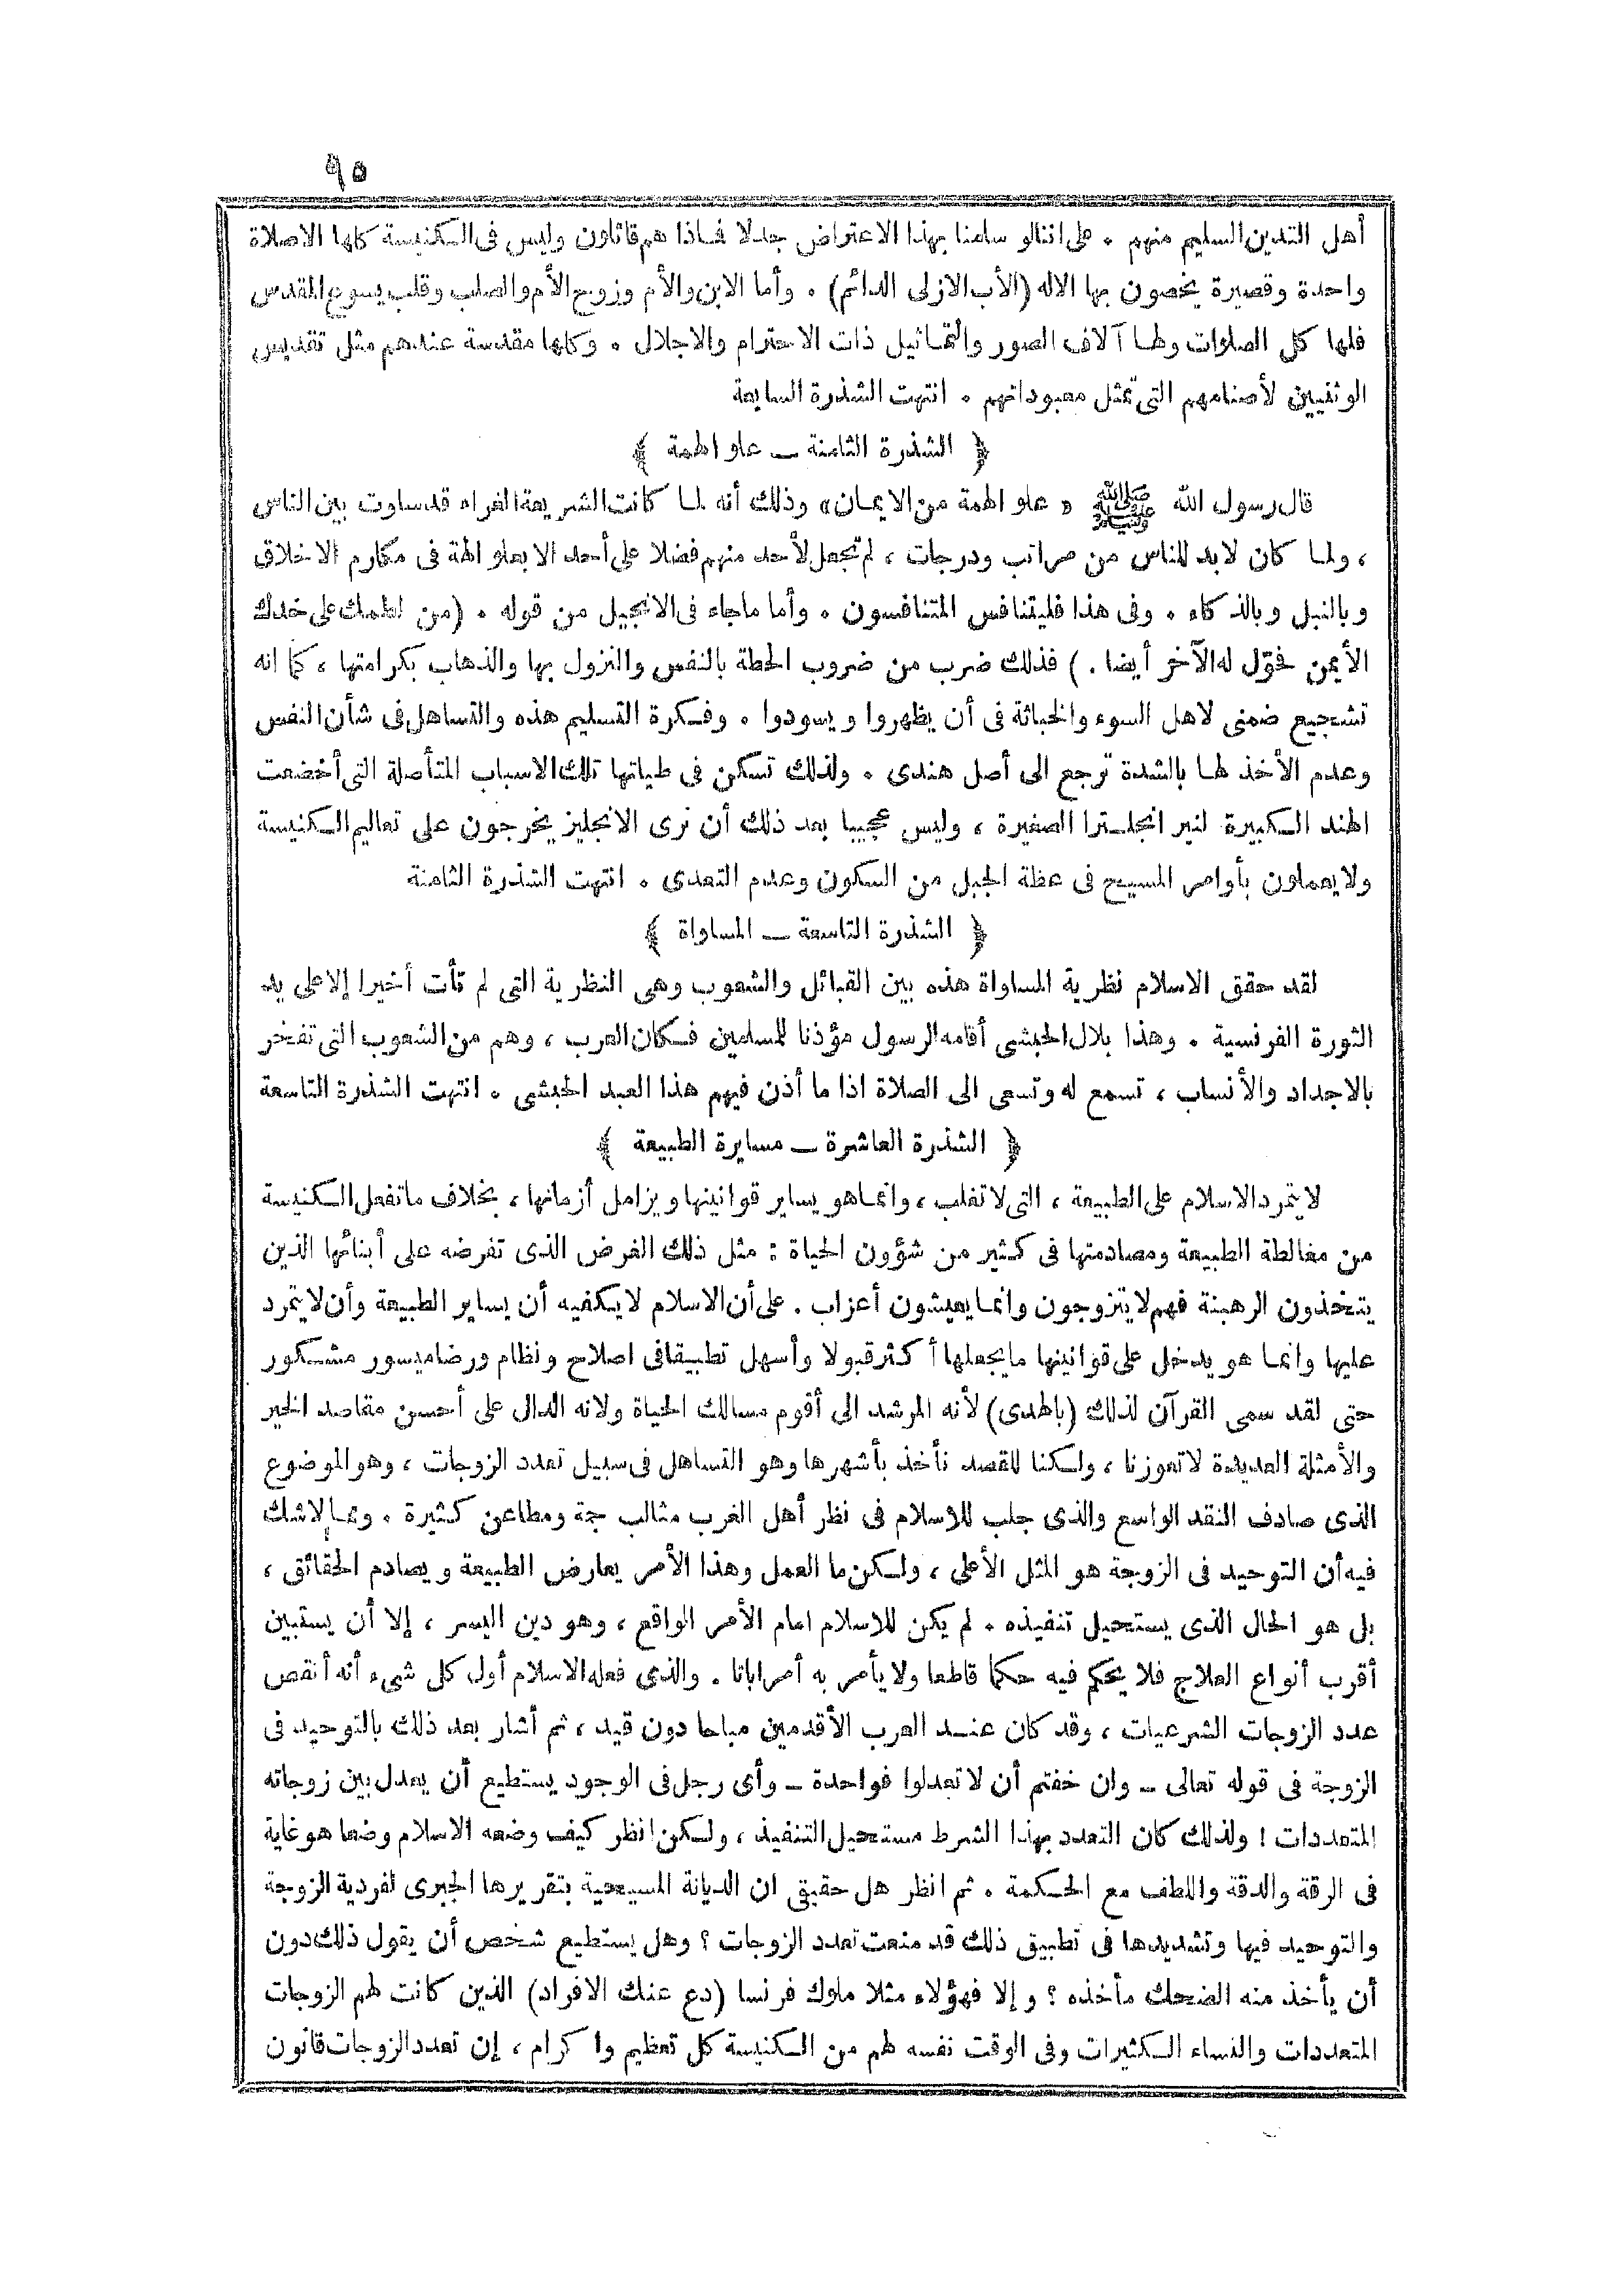 ٩٥
أهل التدين السليم منهم ٠ على اننالو سلمنا بهذا الاعتراض جدلا فماذا هم قائلون وليس فى الكنيسة كلها الاصلاة
واحدة وقصيرة يخصون بها الاله (الأب الازلى الدائم) ٠ وأما الابن والأم وزوج الأم والصلب وقلب يسوع المقدس
فلها كل الصلوات ولها آلاف الصور والتماثيل ذات الاحترام والاجلال ٠ وكلها مقدسة عندهم مثل تقديس
الوثنيين لأصنامهم التى تمثل معبوداتهم ٠ انتهت الشذرة السابعة
﴿ الشذرة الثامنة ــ علو الهمة ﴾
قال رسول الله ﷺ « علو الهمة من الايمان» وذلك أنه لما كانت الشريعة الغراء قدساوت بين الناس
، ولما كان لابد للناس من مراتب ودرجات ، لم تجعل لأحد منهم فضلا على أحد الابعلو الهمة فى مكارم الاخلاق
وبالنبل وبالذكاء ٠ وفى هذا فليتنافس المتنافسون ٠ وأما ماجاء فى الانجيل من قوله ٠ (من لطمك على خدك
الأيمن فحوّل له الآخر أيضا .) فذلك ضرب من ضروب الحطة بالنفس والنزول بها والذهاب بكرامتها ، كما انه
تشجيع ضمنى لاهل السوء والخباثة فى أن يظهروا ويسودوا ٠ وفكرة التسليم هذه والتساهل فى شأن النفس
وعدم الأخذ لها بالشدة ترجع الى أصل هندى ٠ ولذلك تسكن فى طياتها تلك الاسباب المتأصلة التى أخضعت
الهند الكبيرة لنير انجلترا الصغيرة ، وليس عجيبا بعد ذلك أن نرى الانجليز يخرجون على تعاليم الكنيسة
ولايعملون بأوامر المسيح فى عظة الجبل من السكون وعدم التعدى ٠ انتهت الشذرة الثامنة
﴿ الشذرة التاسعة ــ المساواة ﴾
لقد حقق الاسلام نظرية المساواة هذه بين القبائل والشعوب وهى النظرية التى لم تأت أخيرا إلاعلى يد
الثورة الفرنسية ٠ وهذا بلال الحبشى أقامه الرسول مؤذنا للمسلمين فكان العرب ، وهم من الشعوب التى تفخر
بالاجداد والأنساب ، تسمع له وتسعى الى الصلاة اذا ما أذن فيهم هذا العبد الحبشى ٠ انتهت الشذرة التاسعة
﴿ الشذرة العاشرة ــ مسايرة الطبيعة ﴾
لايتمرد الاسلام على الطبيعة ، التى لاتغلب ، وانماهو يساير قوانينها ويزامل أزمانها ، بخلاف ماتفعل الكنيسة
من مغالطة الطبيعة ومصادمتها فى كثير من شؤون الحياة : مثل ذلك الفرض الذى تفرضه على أبنائها الذين
يتخذون الرهبنة فهم لايتزوجون وانمايعيشون أعزاب . على أن الاسلام لايكفيه أن يساير الطبيعة وأن لايتمرد
عليها وانما هو يدخل على قوانينها مايجعلها أكثر قبولا وأسهل تطبيقافى اصلاح ونظام ورضاميسور مشكور
حتى لقد سمى القرآن لذلك (بالهدى) لأنه المرشد الى أقوم مسالك الحياة ولانه الدال على أحسن مقاصد الخير
والأمثلة العديدة لاتعوزنا ، ولكنا للقصد نأخذ بأشهرها وهو التساهل فى سبيل تعدد الزوجات ، وهو الموضوع
الذى صادف النقد الواسع والذى جلب للاسلام فى نظر أهل الغرب مثالب جمة ومطاعن كثيرة ٠ ومما لاشك
فيه أن التوحيد فى الزوجة هو المثل الأعلى ، ولكن ما العمل وهذا الأمر يعارض الطبيعة ويصادم الحقائق ،
بل هو الحال الذى يستحيل تنفيذه ٠ لم يكن للاسلام امام الأمر الواقع ، وهو دين اليسر ، إلا أن يستبين
أقرب أنواع العلاج فلا يحكم فيه حكما قاطعا ولا يأمر به أمراباتا . والذى فعله الاسلام أول كل شىء أنه أنقص
عدد الزوجات الشرعيات ، وقد كان عند العرب الأقدمين مباحا دون قيد ، ثم أشار بعد ذلك بالتوحيد فى
الزوجة فى قوله تعالى ــ وان خفتم أن لاتعدلوا فواحدة ــ وأى رجل فى الوجود يستطيع أن يعدل بين زوجاته
المتعددات ! ولذلك كان التعدد بهذا الشرط مستحيل التنفيذ ، ولكن انظر كيف وضعه الاسلام وضعا هو غاية
فى الرقة والدقة واللطف مع الحكمة ٠ ثم انظر هل حقيقى ان الديانة المسيحية بتقريرها الجبرى لفردية الزوجة
والتوحيد فيها وتشديدها فى تطبيق ذلك قد منعت تعدد الزوجات ؟ وهل يستطيع شخص أن يقول ذلك دون
أن يأخذ منه الضحك مأخذه ؟ وإلا فهؤلاء مثلا ملوك فرنسا (دع عنك الافراد) الذين كانت لهم الزوجات
المتعددات والنساء الكثيرات وفى الوقت نفسه لهم من الكنيسة كل تعظيم واكرام ، إن تعدد الزوجات قانون